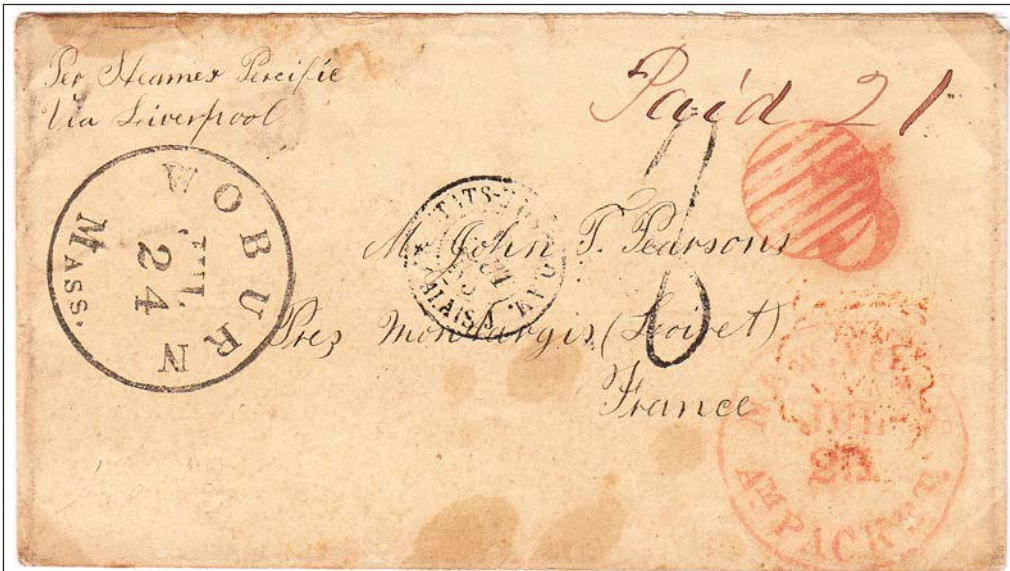 Per Steamer Pacific
Via Liverpool
Paid 21
WOBURN
JUL
24
MASS.
Mr John T. Pearsons
Prez Montargis (Loiret)
France
8
NEW YORK
JUL
25
AM PACKET